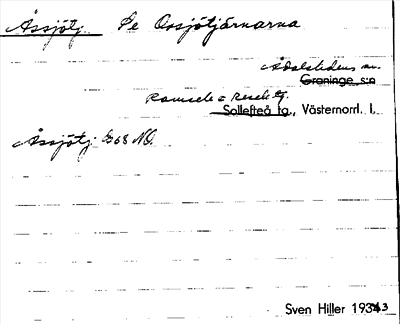 Åssjötj. Se Orrsjötjärnarna
Ådalslidens sn.
Graninge s:n
Ramsele o Resele tg.
Sollefteå tg., Västernorrl. l.
Åssjötj. 68 NO.
Sven Hiller 1943